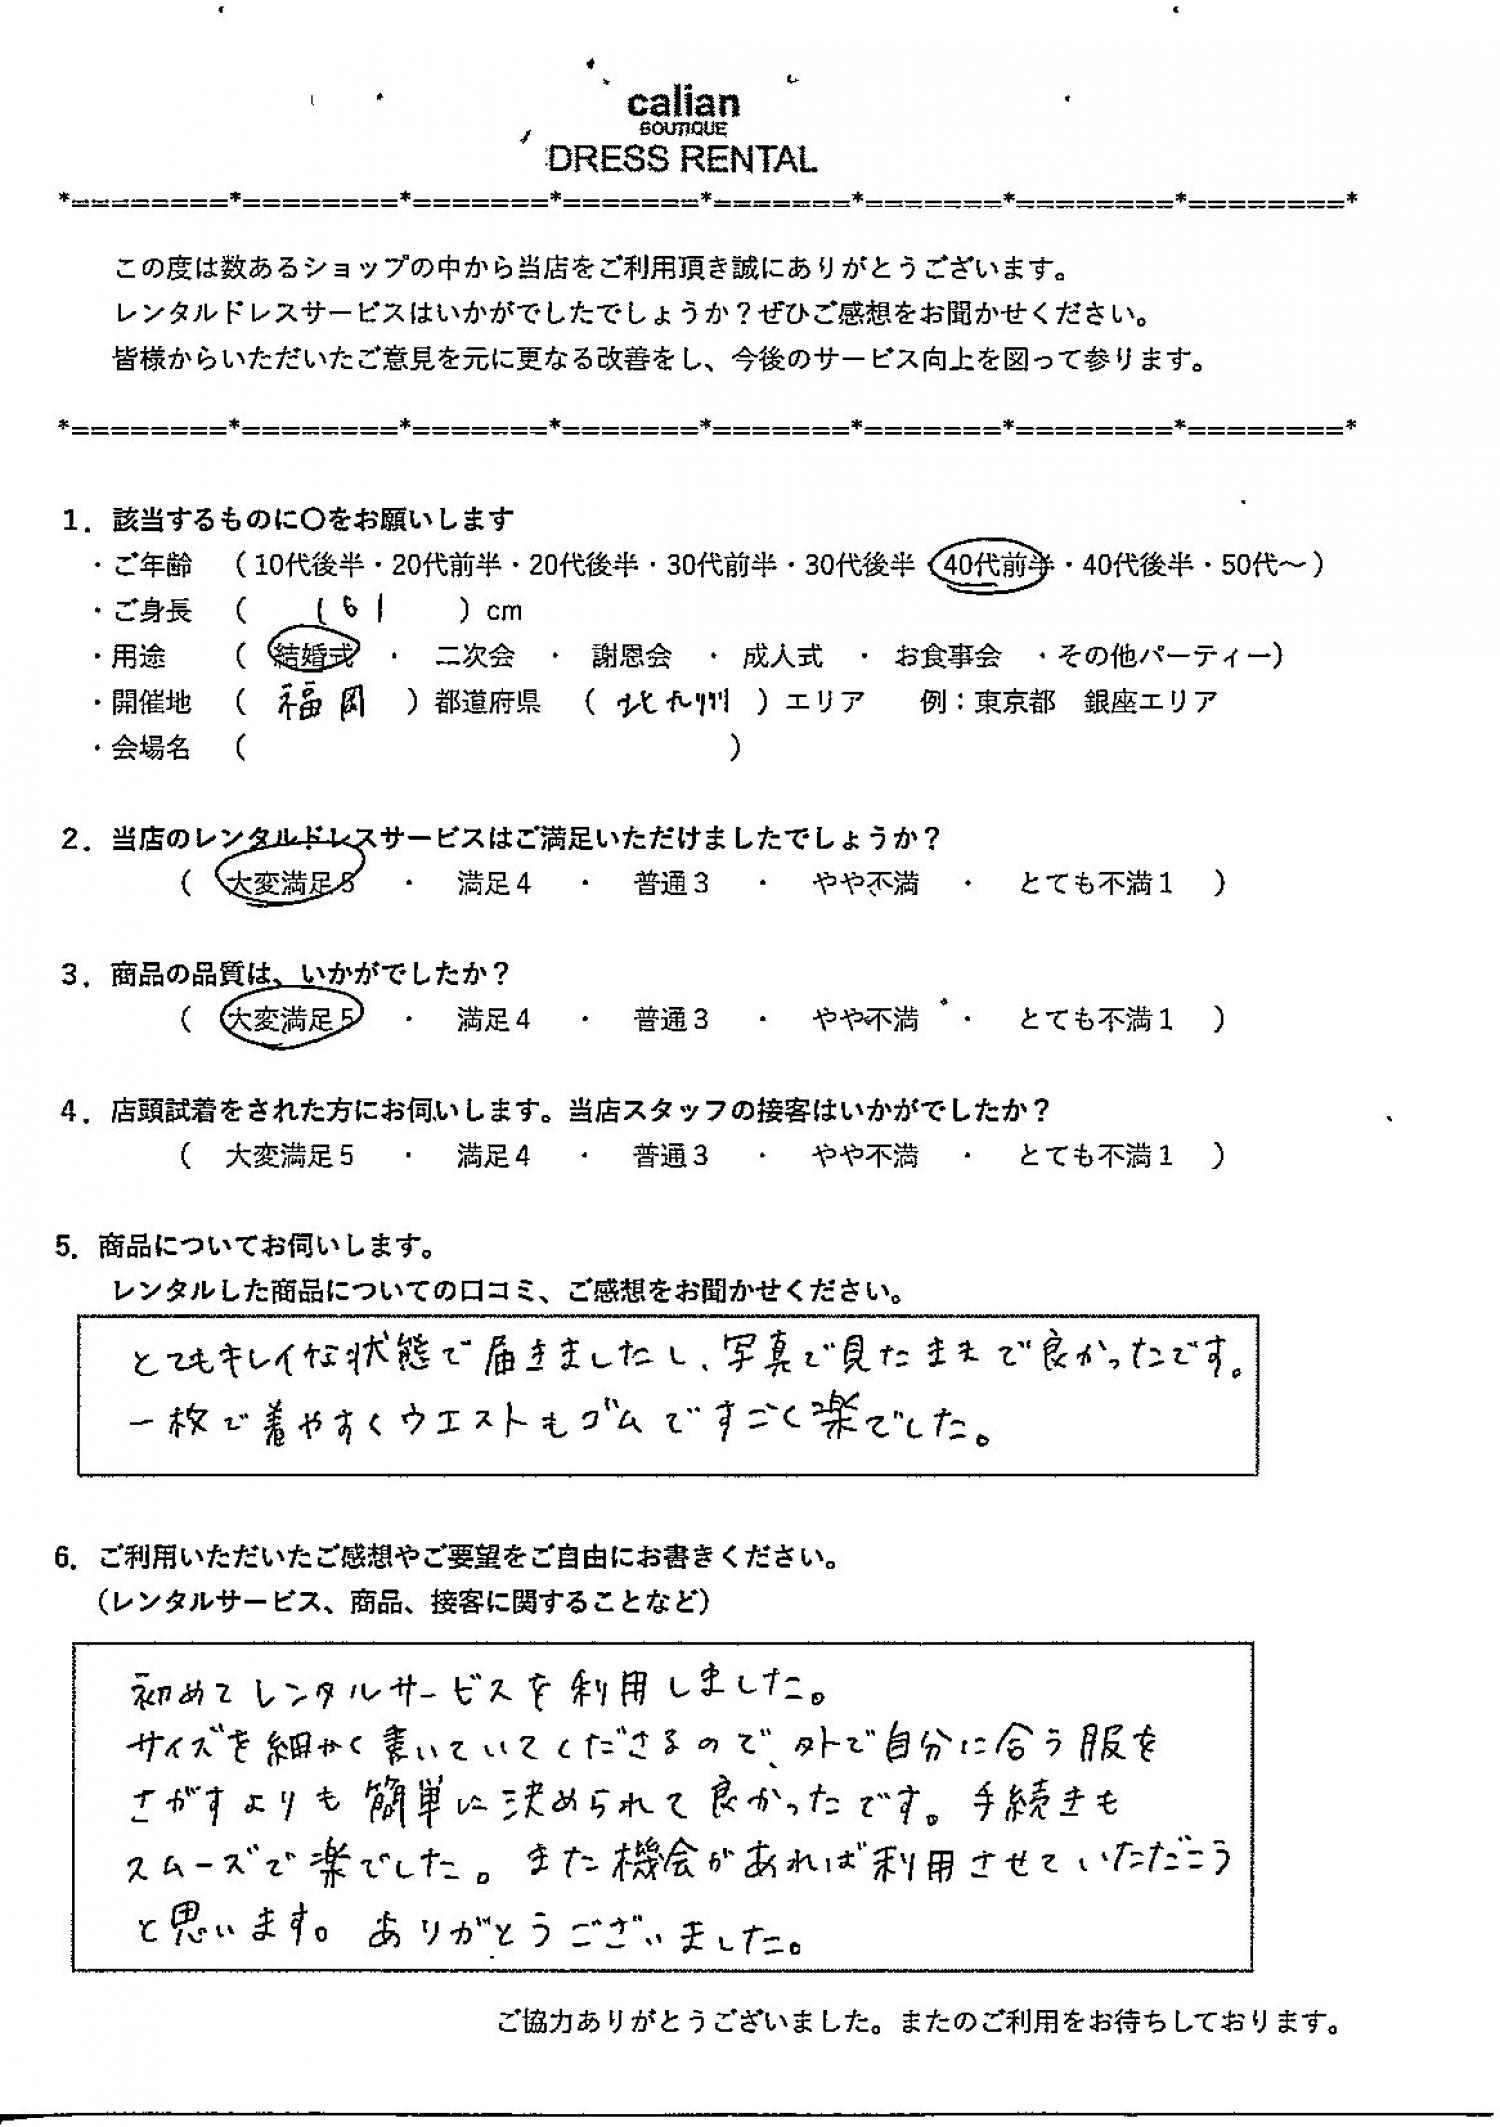 calian
BOUTIQUE
DRESS RENTAL
*========*========*=======*=======*=======*=======*========*========*
この度は数あるショップの中から当店をご利用頂き誠にありがとうございます。
レンタルドレスサービスはいかがでしたでしょうか？ぜひご感想をお聞かせください。
皆様からいただいたご意見を元に更なる改善をし、今後のサービス向上を図って参ります。
*========*========*=======*=======*=======*=======*========*========*
1．該当するものに〇をお願いします
・ご年齢 （10代後半・20代前半・20代後半・30代前半・30代後半・40代前半・40代後半・50代～）
・ご身長 （ 161 ）cm
・用途 （ 結婚式 ・ 二次会 ・ 謝恩会 ・ 成人式 ・ お食事会 ・その他パーティー）
・開催地 （ 福岡 ）都道府県 （ 北九州 ）エリア 例：東京都 銀座エリア
・会場名 （ ）
2．当店のレンタルドレスサービスはご満足いただけましたでしょうか？
（ 大変満足5 ・ 満足4 ・ 普通3 ・ やや不満 ・ とても不満1 ）
3．商品の品質は、いかがでしたか？
（ 大変満足5 ・ 満足4 ・ 普通3 ・ やや不満 ・ とても不満1 ）
4．店頭試着をされた方にお伺いします。当店スタッフの接客はいかがでしたか？
（ 大変満足5 ・ 満足4 ・ 普通3 ・ やや不満 ・ とても不満1 ）
5．商品についてお伺いします。
レンタルした商品についての口コミ、ご感想をお聞かせください。
とてもキレイな状態で届きましたし、写真で見たままで良かったです。
一枚で着やすくウエストもゴムですごく楽でした。
6．ご利用いただいたご感想やご要望をご自由にお書きください。
（レンタルサービス、商品、接客に関することなど）
初めてレンタルサービスを利用しました。
サイズを細かく書いていてくださるので、外で自分に合う服を
さがすよりも簡単に決められて良かったです。手続きも
スムーズで楽でした。また機会があれば利用させていただこう
と思います。ありがとうございました。
ご協力ありがとうございました。またのご利用をお待ちしております。